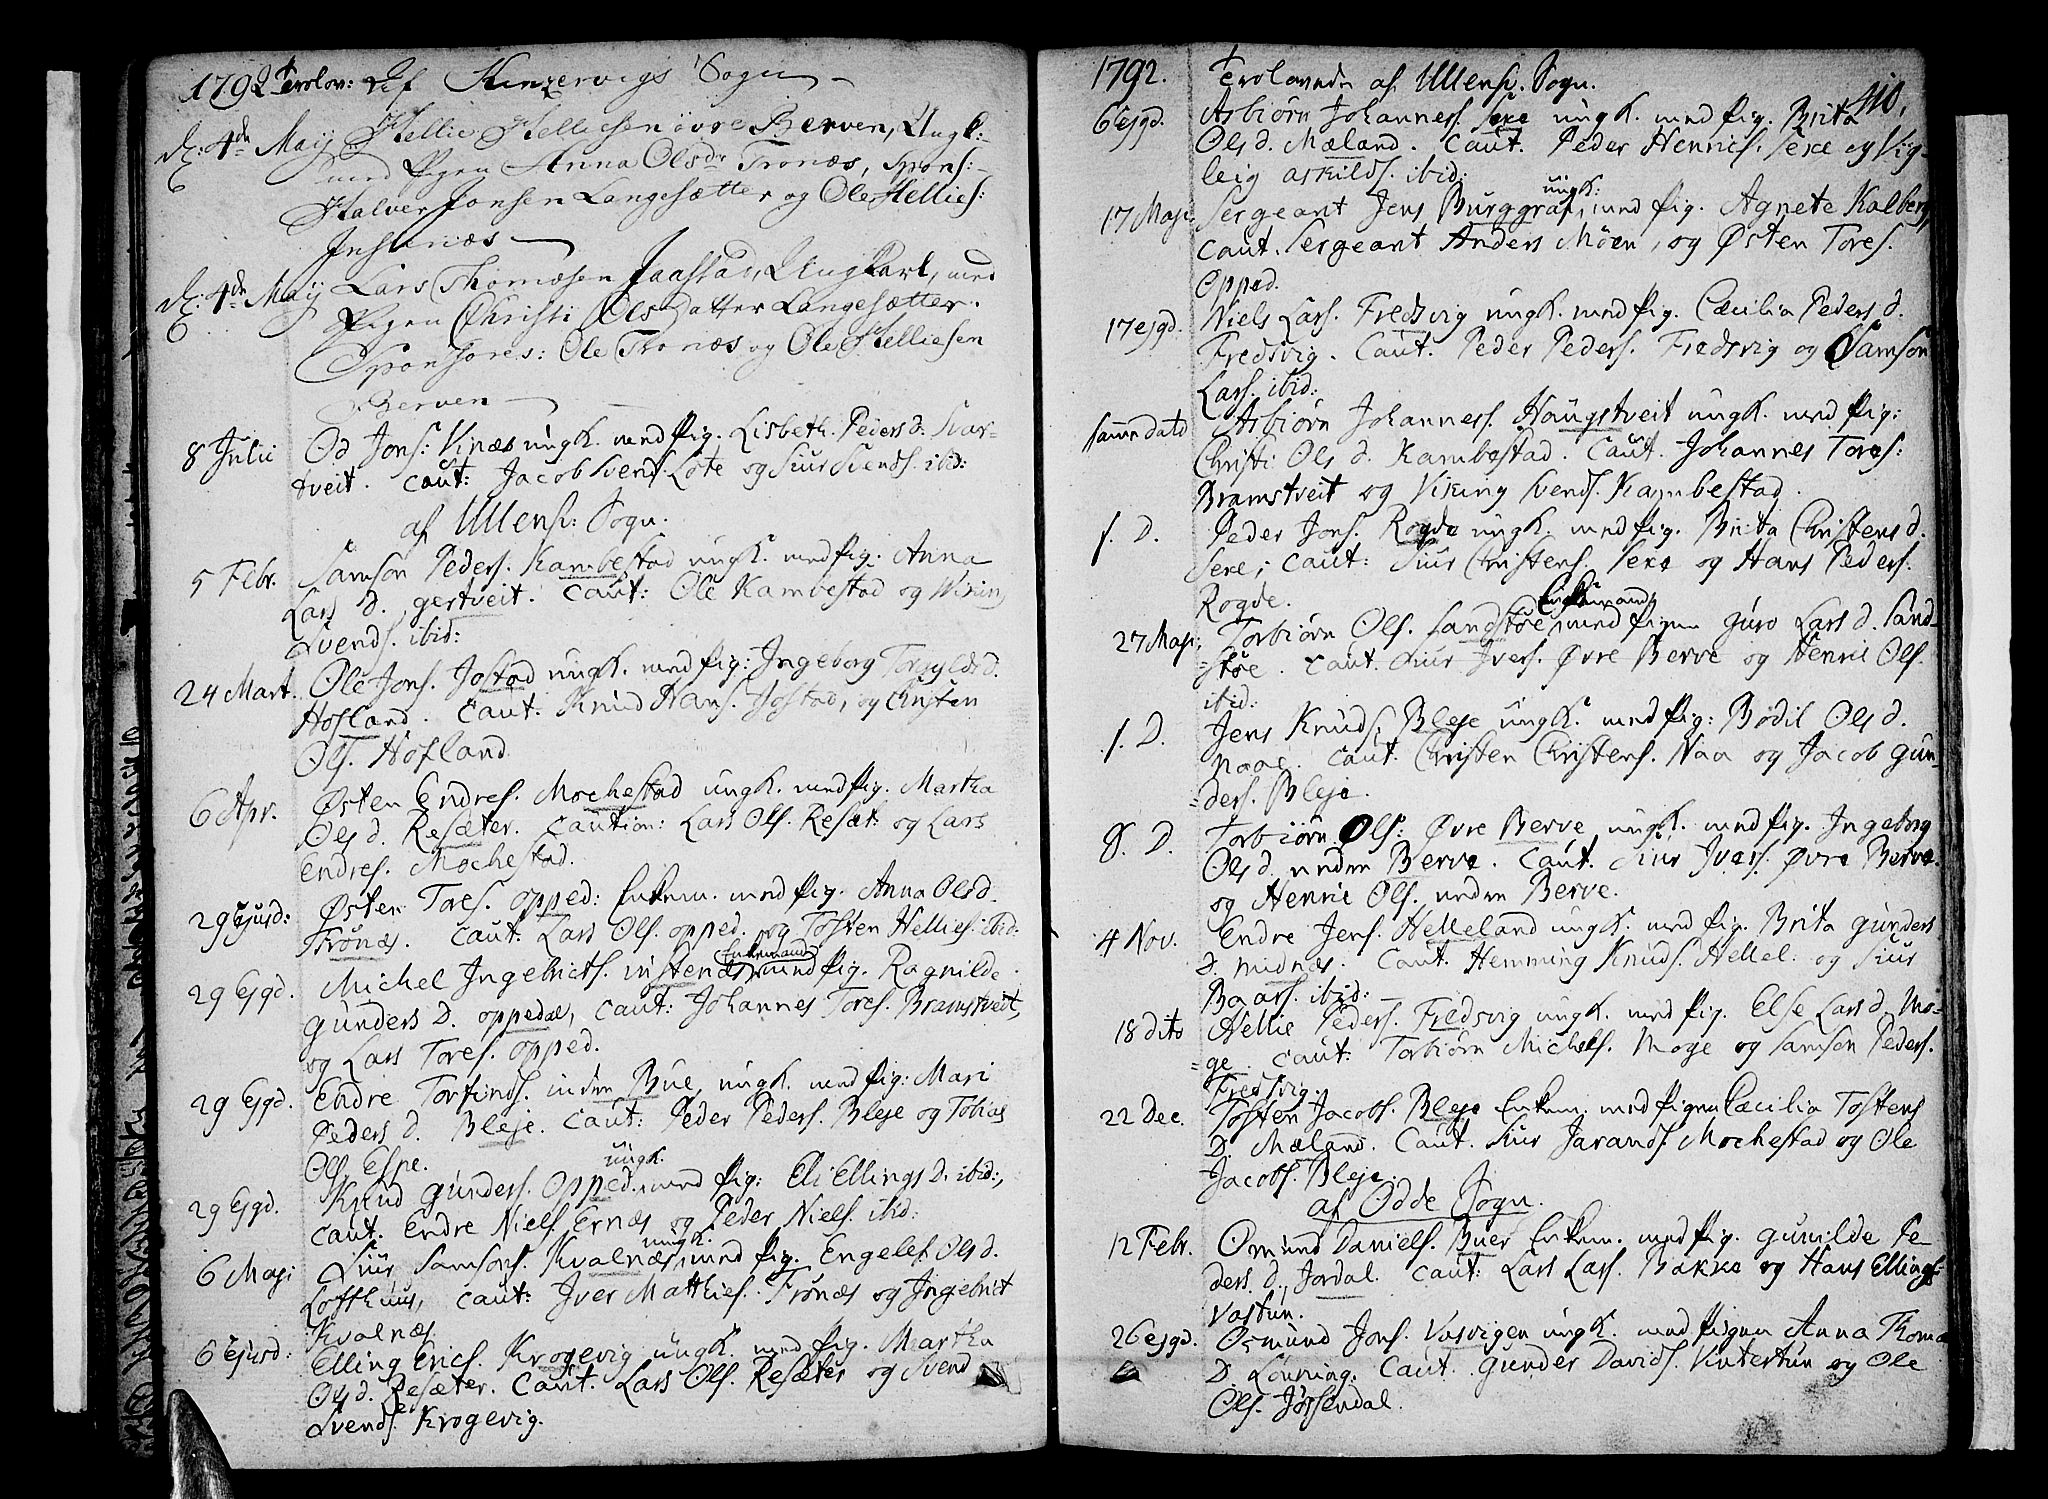 1792 Trolov: Af Kinzervigs Sogn
d: 4de Maij Hellie Helliesen övre Berven, Ungk:
med Pigen Anna Olsdr Tronæs, Spons:
Halver Jonsen Langesætter og Ole Hellies:
Instenæs
d: 4de Maij Lars Thomæsen Jaastad, Ungkarl, med
Pigen Christi Ols Datter Langesætter.
Sponsores: Ole Tronæs og Ole Helliesen
Berven
8 Julii Od Jons: Vinæs ungk. med pig. Lisbeth Peders d. Svar-
tveit. Caut: Jacob Svends. Lote og Siur Svends. ibid:
af Ullens: Sogn.
5 Febr. Samson Peders. Kambestad ungk. med pig. Anna
Lars d. gertveit. Caut: Ole Kambestad og Viking
Svends. ibid:
24 Mart. Ole Jons. Jostad ungk. med pig: Ingeborg Torgylds d.
Hofland. Caut. Knud Hans. Jostad, og Christen
Ols. Hofland.
6 Apr. Østen Endres. Mochestad ungk. med pig. Martha
Ols d. Resæter. Caution: Lars Ols. Resæt: og Lars
Endres. Mochestad.
29 Ejusd: Østen Tores. opped: Enkem. med pig. Anna Olsd.
Frönæs. Caut: Lars Ols. opped. og Tosten Hellies: ibid:
29 Ejgd. Michel Ingebricts. instenæs Enkemand med pig. Ragnilde
gunders D. oppedal, Caut: Johannes Tores. Bramstveit,
og Lars Tores. opped.
29 Ejgd. Endre Torfinds. inden Bue, ungk. med pig: Mari
Peders d. Bleje. Caut: Peder Peders. Bleje og Tobias
Ols. Espe.
29 Ejgd. Knud gunders. opped. ungk. med pig: Eli Ellings D. ibid:,
Caut. Endre Niels. Ernæs og Peder Niels. ibid:
6 Maji Siur Samsons. Kvalnæs ungk. med pig. Engelef. Ols d.
Lofthuus, Caut: Iver Matthies. Frönæs og Ingebrict
Kvalnæs.
6 Ejusd: Elling Erics. Krogevig ungk. med pig. Martha
Ols d. Resæter. Caut. Lars Ols. Resæter og Svend
Svends. Krogevig.
1792. Trolovede af Ullens. Sogn. 110.
6 ejgd. Asbiörn Johannes. Sexe ungk. med pig. Brita
Ols d. Mæland. Caut. Peder Henrics. Sexe og Vig-
leig askilds. ibid:
17 Maji Sergeant Jens Burggraf, ungk: med pig. Agnete Kalberg,
Caut. Sergeant Anders Möen, og Østen Tores.
Opped.
17 ejgd. Niels Lars. Fredsvig ungk. med pig. Cæcilia Peders d.
Fredsvig. Caut. Peder Peders. Fredsvig og Samson
Lars. ibid:
samme dato Asbiörn Johanness. Haugstveit ungk. med pig:
Christi Ols d. Kambestad. Caut. Johannes Tores:
Bramstveit og Viking Svends. Kambestad.
s. D. Peder Jons. Rogde ungk. med pig. Brita Christens d.
Sexe; Caut: Siur Christens. Sexe og Hans Peders.
Rogde.
27 Maji Torbiörn Ols. Sandstöe Enkemand, med pigen guro Lars d. Sand-
=stöe. Caut. Siur Ivers. Øvre Berve og Henric Ols.
ibid:
s. D. Jens Knuds. Bleje ungk. med pig: Bodil Ols d.
Naae. Caut. Christen Christens. Naa og Jacob gun-
=ders. Bleje.
8. D. Torbiörn Ols: Øvre Berve ungk. med pig. Ingeborg
Ols d. neden Berve. Caut. Siur Ivers. Øvre Berve
og Henric Ols. neden Berve.
4 Nov. Endre Jens. Helleland ungk. med pig. Brita gunders
D. midnæs. Caut. Hemming Knuds. Hellel: og Siur
Baars. ibid:
18 dito Hellie Peders. Fredsvig ungk. med pig. Else Lars d. Mo-
=ge. Caut: Torbiörn Michels. Moge og Samson Peders.
Fredsvig.
22 Dec. Tosten Jacobs. Bleje Enkem. med pigen Cæcilia Tostens
D. Mæland. Caut. Siur Jarands. Mochestad og Ole
Jacobs. Bleje.
af Odde Sogn.
12 Febr. Omund Daniels. Buer Enkem. med pig. gunilde Pe-
ders d. Jordal. Caut: Lars Lars. Bakke og Hans Ellings.
Vastun.
26 ejgd. Osmund Jons. Vasvigen ungk. med pigen Anna Thomæ
D. Lönning. Caut. gunder Davids. Vintertun og Ole
Ols. Jössendal.